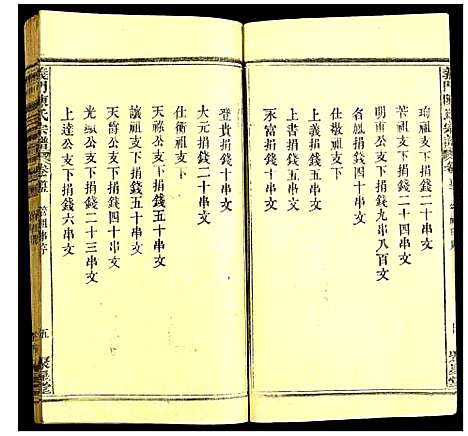 義門陳氏宗譜
琦祖支下捐錢二十串文
若祖支下捐錢四十串文
明甫支下捐錢九串八百文
仕敬祖支下
上義捐錢四十串文
上貴捐錢十串文
永富捐錢十串文
登貴捐錢十串文
大元捐錢二十串文
仕衛祖支下
讓祖支下捐錢五十串文
天祿公支下捐錢五十串文
天爵公支下捐錢四十串文
光顯公支下捐錢二十三串文
上達公支下捐錢六串文
義門陳氏宗譜
五
聚星堂